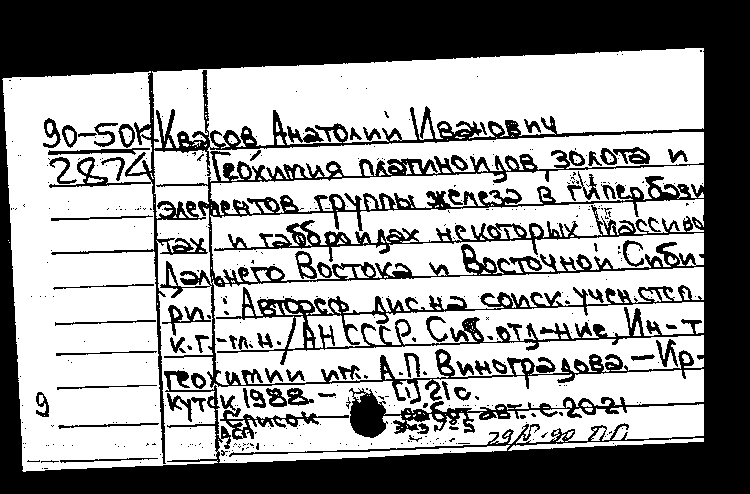 90-50К Квасов Анатолий Иванович
2874 Геохимия платиноидов, золота и
элементов группы железа в гипербази
тах и габброидах некоторых массиво
Дальнего Востока и Восточной Сиби-
ри.: Автореф. дис. на соиск. учен. степ.
к.г.-м.н. / АН СССР. Сиб. отд-ние, Ин-т
геохимии им. А.П. Виноградова. — Ир-
кутск, 1988. — [1] 21 с.
9 Список работ авт.: с. 20-21
ДСП экз №5
29/V-90